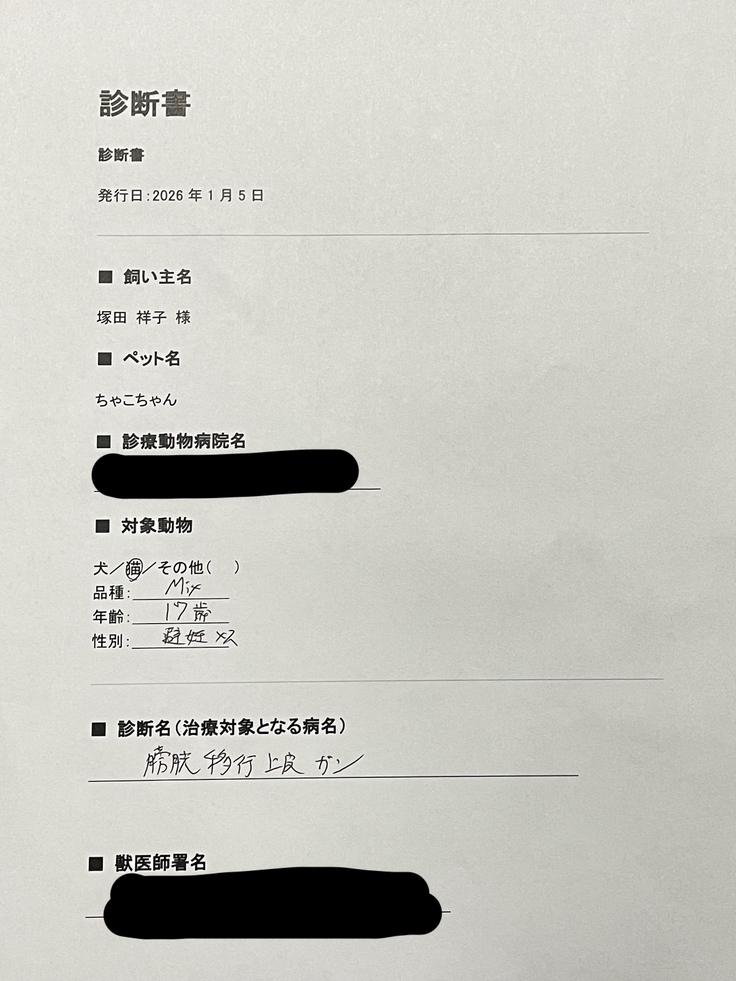 診断書
診断書
発行日:2026年1月5日
■ 飼い主名
塚田 祥子 様
■ ペット名
ちゃこちゃん
■ 診療動物病院名
■ 対象動物
犬／猫／その他( )
品種: Mix
年齢: 17歳
性別: 避妊メス
■ 診断名（治療対象となる病名）
膀胱 移行上皮ガン
■ 獣医師署名